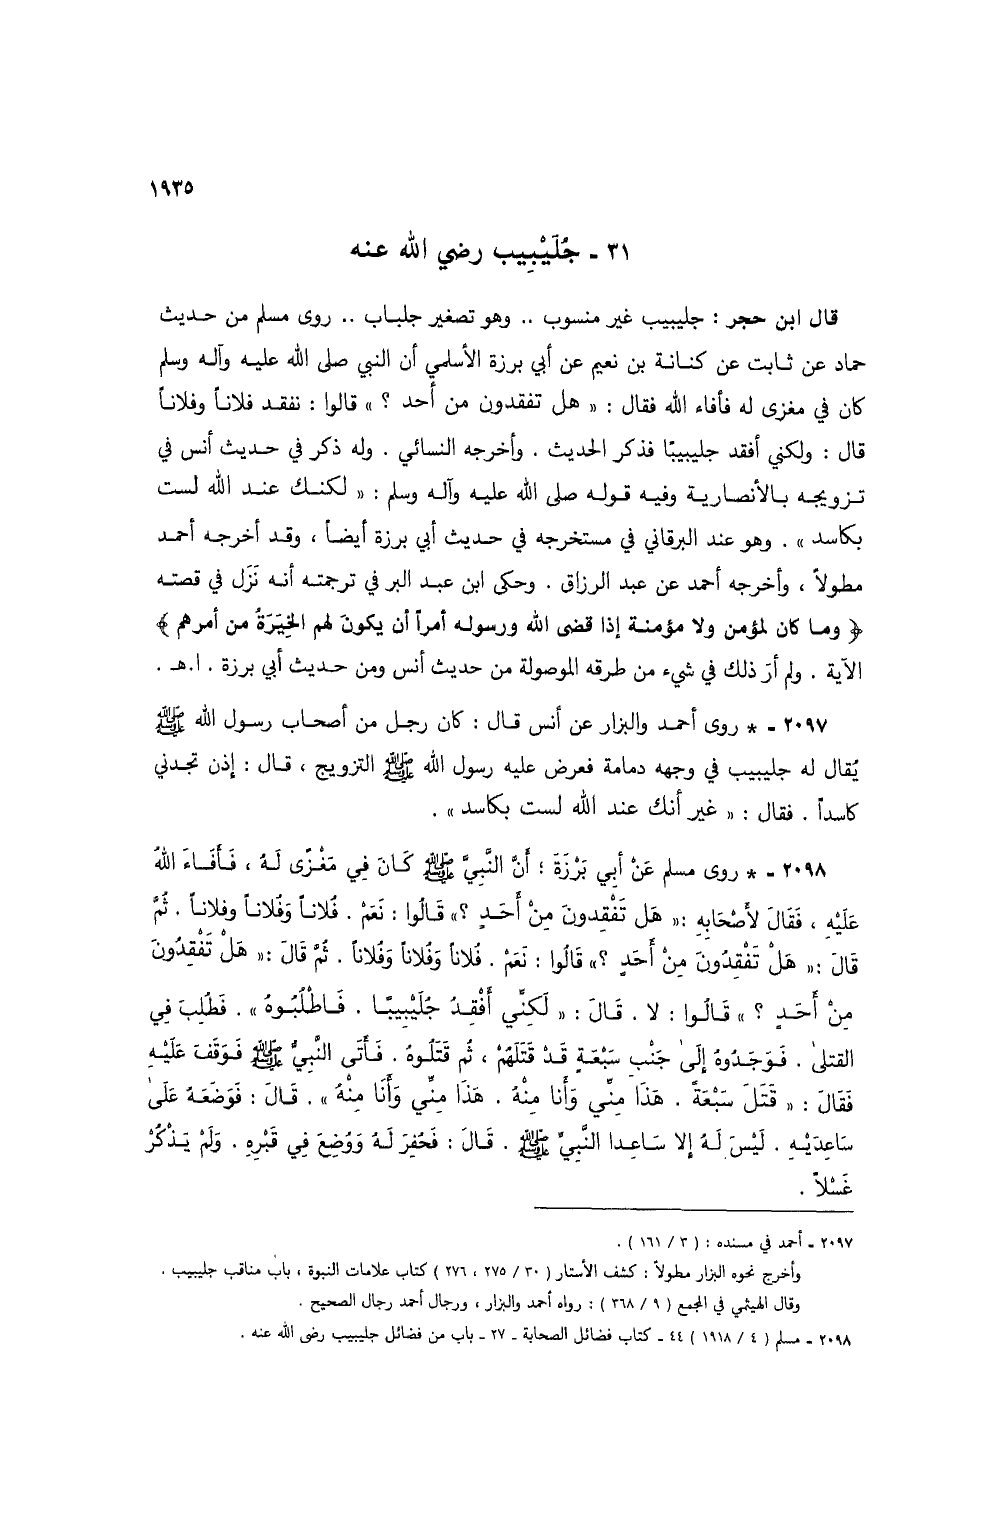 ١٩٣٥
٣١ - جُلَيْبِيب رضي الله عنه
قال ابن حجر : جليبيب غير منسوب .. وهو تصغير جلباب .. روى مسلم من حديث
حماد عن ثابت عن كنانة بن نعيم عن أبي برزة الأسلمي أن النبي صلى الله عليه وآله وسلم
كان في مغزى له فأفاء الله فقال : « هل تفقدون من أحد ؟ » قالوا : نفقد فلاناً وفلاناً
قال : ولكني أفقد جليبيبًا فذكر الحديث . وأخرجه النسائي . وله ذكر في حديث أنس في
تزويجه بالأنصارية وفيه قوله صلى الله عليه وآله وسلم : « لكنك عند الله لست
بكاسد » . وهو عند البرقاني في مستخرجه في حديث أبي برزة أيضاً ، وقد أخرجه أحمد
مطولاً ، وأخرجه أحمد عن عبد الرزاق . وحكى ابن عبد البر في ترجمته أنه نَزَل في قصته
﴿ وما كان لمؤمن ولا مؤمنة إذا قضى الله ورسوله أمراً أن يكونَ لهم الخِيَرَةُ من أمرهم ﴾
الآية . ولم أرَ ذلك في شيء من طرقه الموصولة من حديث أنس ومن حديث أبي برزة . ا.هـ .
٢٠٩٧ - * روى أحمد والبزار عن أنس قال : كان رجل من أصحاب رسول الله ﷺ
يُقال له جليبيب في وجهه دمامة فعرض عليه رسول الله ﷺ التزويج ، قال : إذن تجدني
كاسداً . فقال : « غير أنك عند الله لست بكاسد » .
٢٠٩٨ - * روى مسلم عَنْ أبي بَرْزَةَ ؛ أنَّ النَّبيَّ ﷺ كَانَ فِي مَغْزًى لَهُ ، فَأَفَاءَ اللهُ
عَلَيْهِ ، فَقَالَ لأَصْحَابِهِ :« هَل تَفْقِدونَ مِنْ أَحَدٍ ؟» قَالُوا : نَعَمْ . فُلاناً وَفُلاناً وفلاناً . ثُمَّ
قَالَ :« هَلْ تَفْقِدُونَ مِنْ أَحَدٍ ؟» قَالُوا : نَعَمْ . فُلاناً وَفُلاناً وَفُلاناً . ثُمَّ قَالَ :« هَلْ تَفْقِدُونَ
مِنْ أَحَدٍ ؟ » قَالُوا : لا . قَالَ : « لَكِنِّي أَفْقِدُ جُلَيْبِيبًا . فَاطْلُبُوهُ » . فَطُلِبَ فِي
القتلىٰ . فَوَجَدُوهُ إلىٰ جَنْبِ سَبْعَةٍ قَدْ قَتَلَهُمْ ، ثُم قَتَلُوهُ . فَأَتَى النَّبيُّ ﷺ فَوَقَفَ عَلَيْهِ
فَقَالَ : « قَتَلَ سَبْعَةً . هَذَا مِنِّي وَأَنا مِنْهُ . هَذَا مِنِّي وَأَنَا مِنْهُ » . قَالَ : فَوَضَعَهُ عَلَىٰ
سَاعِدَيْهِ . لَيْسَ لَهُ إلا سَاعِدا النَّبيِّ ﷺ . قَالَ : فَحُفِرَ لَهُ وَوُضِعَ فِي قَبْرِهِ . وَلَمْ يَذْكُرْ
غَسْلاً .
٢٠٩٧ - أحمد في مسنده : ( ٣ / ١٦١ ) .
وأخرج نحوه البزار مطولاً : كشف الأستار ( ٣٠ / ٢٧٥ ، ٢٧٦ ) كتاب علامات النبوة ، باب مناقب جليبيب .
وقال الهيثمي في المجمع ( ٩ / ٣٦٨ ) : رواه أحمد والبزار ، ورجال أحمد رجال الصحيح .
٢٠٩٨ - مسلم ( ٤ / ١٩١٨ ) ٤٤ - كتاب فضائل الصحابة - ٢٧ - باب من فضائل جليبيب رضى الله عنه .